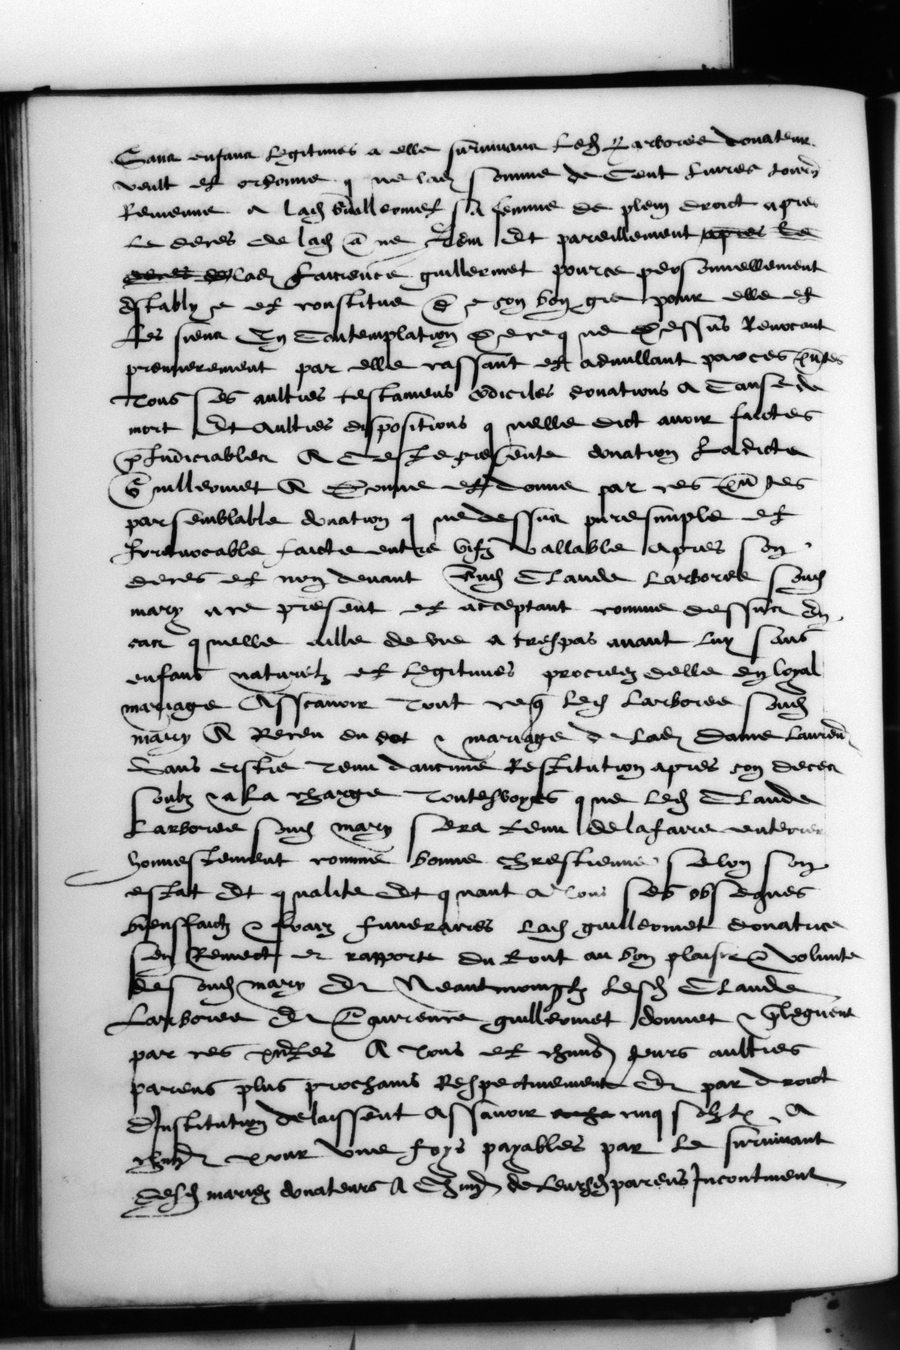 Sans enfans legitimes a elle survivans led Larboree donateur
veult et ordonne q ne lad somme de Cent livres tourn
Revienne a lad Guillermet sa femme de plein droict apres
le deces de lad Et pareillement apres le
deces de lad Laurence guillermet pource personnellement
establye et constitue de son bon gre pour elle et
les siens En Contemplation de ce que dessus Revocant
premierement par elle cassant et adnullant par ces pntes
Tous ses aultres testamens codiciles donations a Cause de
mort Et aultres dispositions q uelle dict avoir faictes
preiudiciables A Ceste presente donation Ladicte
Guillermet A Donne et donne par ces pntes
par semblable donation q ue dessus pure simple et
Irrevocable faicte entre vifz vallable apres son
deces et non devant Aud Claude Larboree sond
mary a ce present et acceptant comme dessus En
cas q uelle aille de vie a trespas avant luy sans
enfans naturelz et legitimes procreez delle en loyal
mariage Assçavoir Tout ce q led Larboree sond
mary A Receu en dot & mariage de lad Dame Lauren
Sans estre tenu daucune Restitution apres son deces
soubz & a la charge Toutesvoyes q ue led Claude
Larboree sond mary sera tenu de la faire enterrer
honnestement comme bonne chrestienne selon son
estat Et q ualite Et q uant a Tous ses obseques
biensfaictz & fraiz funeraires lad guillermet donatrice
sen Remect et rapporte du tout au bon plaisir & volunte
de sond mary Et Neantmoingtz lesd Claude
Larboree Et Laurence guillermet donnet & preleguent
par ces pntes A Tous et chuns leurs aultres
parens plus prochains Respectivement Et par droict
dInstitution delaissent Assavoir cinq solz tz A
chun pour une foys payables par le survivant
desd mariez donateurs A Chun de leursd parens Incontinent